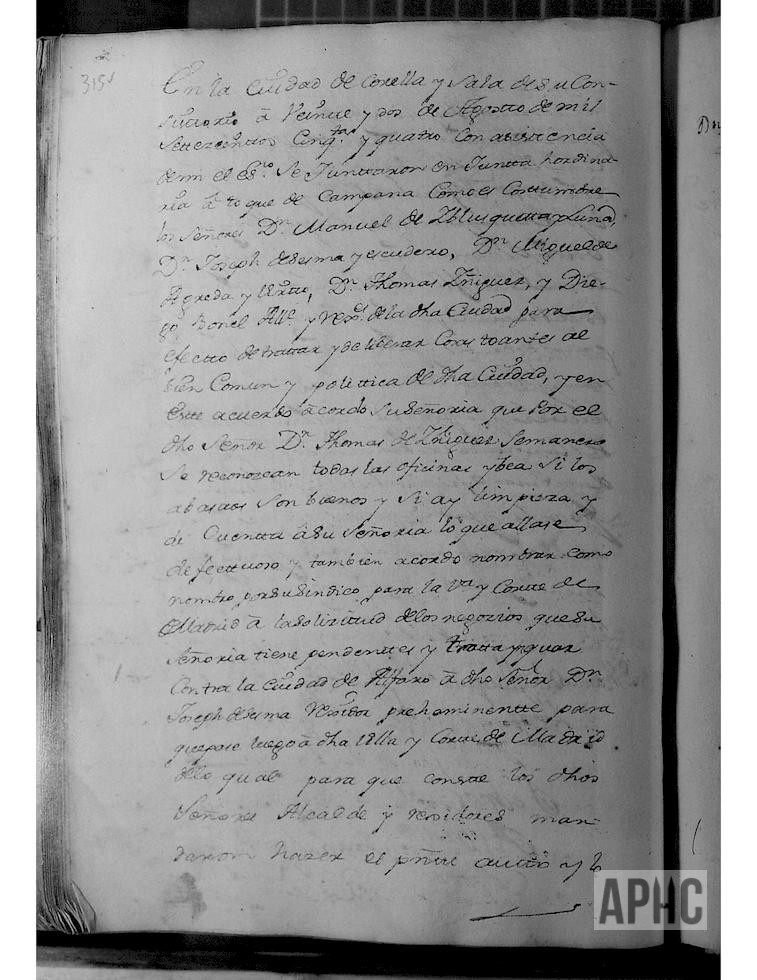 315v
En la Ciudad de Corella y Sala de su Con-
sultorio â Veinte y dos de Agosto de mil
Settezientos Cinqta. y quatro con assistencia
de mi el Essno. Se Junttaron en Juntta hordina-
ria â toque de Campana Como es Costumbre
los Señores Dn. Manuel de Ybilusqueta y Luna,
Dn. Joseph de Sesma y escudero, Dn. Miguel de
Agreda y, Dn. Thomas Yñiguez, y Die-
go Bonel Alle. y rexres. de la dha Ciudad para
efectto de trattar y deliberar Cosas tocantes al
bien Comun y polittica de dha Ciudad, y en
Este acuerdo âcordo su Señoria que Por el
dho Señor Dn. Thomas de Yñiguez Semanero
Se reconozcan todas las oficinas y bea si los
abastos son buenos y si ay limpieza y
de Cuentta â su Señoria lo que allase
defecttuoso y tambien acordo nombrar como
nombro por su Sindico para la Va. y Corte de
Madrid â la solizitud de los negozios que su
Señoria tiene pendientes y tratta y siguar
Contra la Ciudad de Alfaro â dho Señor Dn.
Joseph de Sesma Rexidor prehaminentte para
que pase luego â dha Villa y Corte de Madrid
de lo qual para que conste los dhos
Señores Alcalde y rexidores man-
daron hazer el pntte autto y lo
APHC